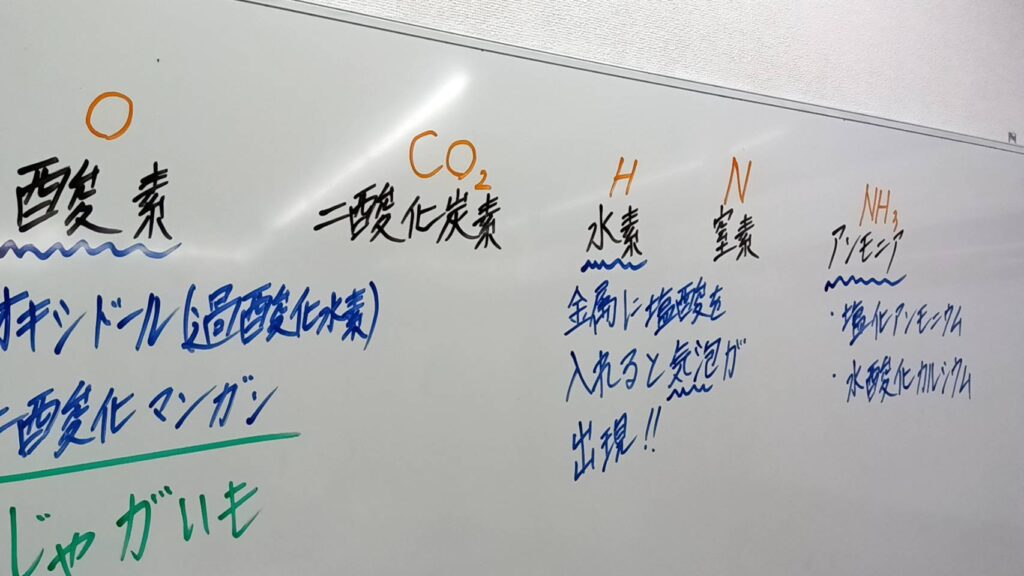 O
酸素
オキシドール(過酸化水素)
二酸化マンガン
じゃがいも
CO₂
二酸化炭素
H
水素
金属に塩酸を
入れると気泡が
出現!!
N
窒素
NH₃
アンモニア
・塩化アンモニウム
・水酸化カルシウム